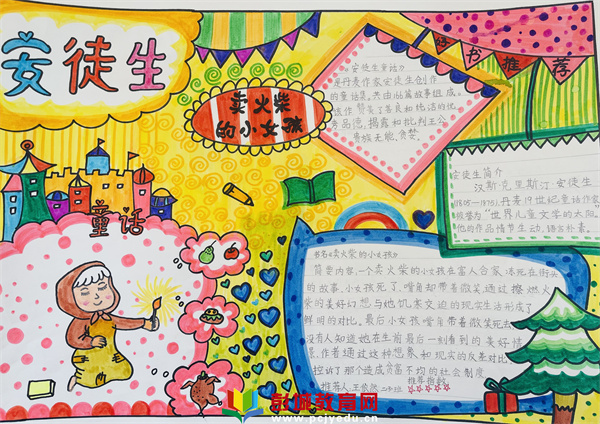 安徒生
童话
卖火柴
的小女孩
好书推荐
《安徒生童话》
是丹麦作家安徒生创作
的童话集。共由166篇故事组成。
该作 赞美了善良和纯洁的优
秀品德,揭露和批判王公
贵族无能、贪婪。
安徒生简介
汉斯·克里斯汀·安徒生
(1805—1875),丹麦19世纪童话作家
被誉为“世界儿童文学的太阳。
他的作品情节生动、语言朴素。
书名《卖火柴的小女孩》
简要内容,一个卖火柴的小女孩在富人合家
冻死在街头
的故事。小女孩死了,嘴角却带着微笑,通过擦燃火
柴的美好幻想与她饥寒交迫的现实生活形成了
鲜明的对比。最后小女孩嘴角带着微笑死去
没有人知道她在生前最后一刻看到的美好情
景,作者通过这种想象和现实的反差对比
控诉了那个造成贫富不均的社会制度
推荐人:王
推荐指数
☆☆☆☆☆
彭城教育网
www.pcjyedu.cn